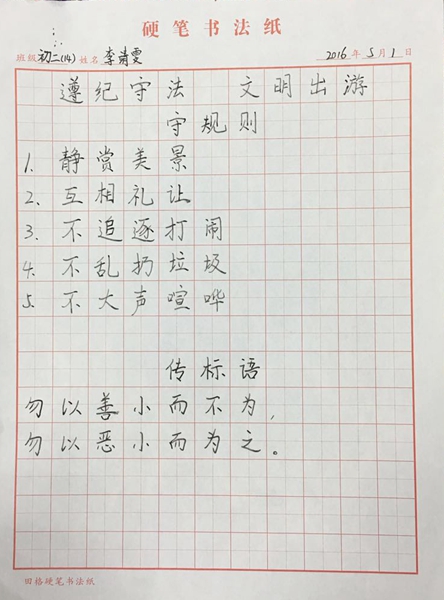 硬笔书法纸
班级 初二(14) 姓名 李靖雯 2016年5月1日
遵纪守法 文明出游
守规则
1. 静赏美景
2. 互相礼让
3. 不追逐打闹
4. 不乱扔垃圾
5. 不大声喧哗
传标语
勿以善小而不为,
勿以恶小而为之。
田格硬笔书法纸